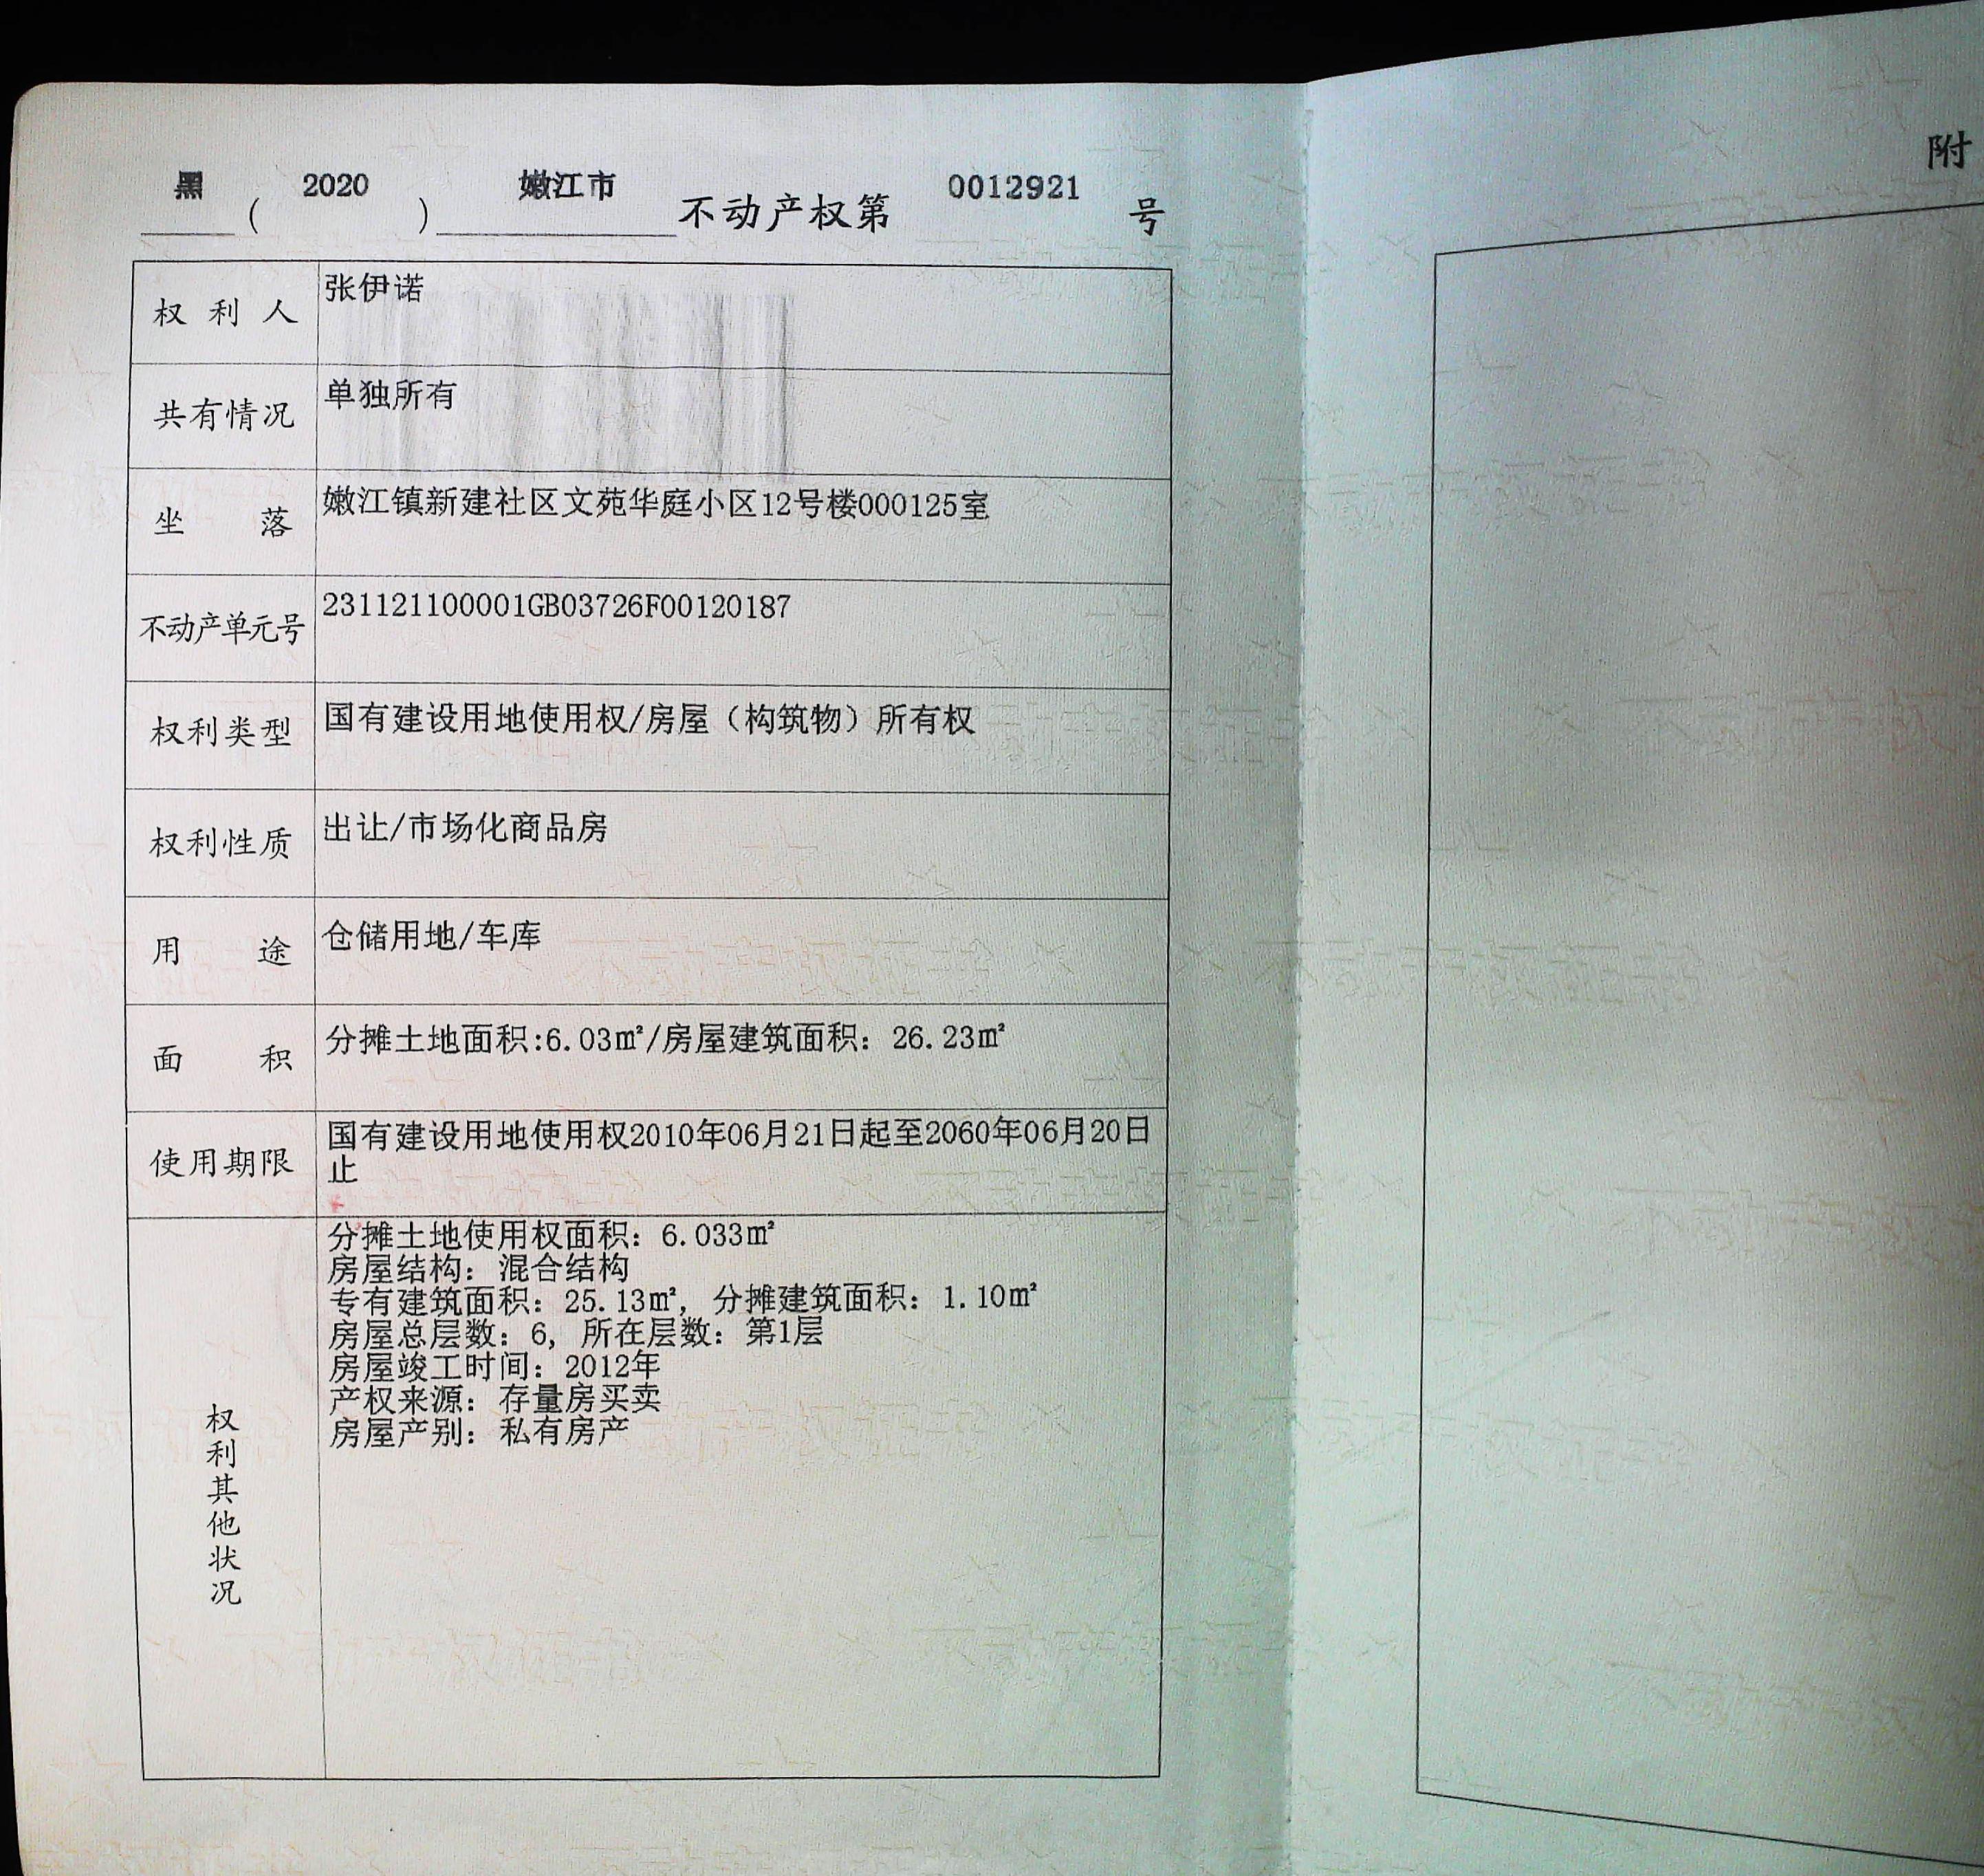 黑 ( 2020 ) 嫩江市 不动产权第 0012921 号
权利人 张伊诺
共有情况 单独所有
坐落 嫩江镇新建社区文苑华庭小区12号楼000125室
不动产单元号 231121100001GB03726F00120187
权利类型 国有建设用地使用权/房屋（构筑物）所有权
权利性质 出让/市场化商品房
用途 仓储用地/车库
面积 分摊土地面积:6.03㎡/房屋建筑面积：26.23㎡
使用期限 国有建设用地使用权2010年06月21日起至2060年06月20日
止
权利其他状况
分摊土地使用权面积：6.033㎡
房屋结构：混合结构
专有建筑面积：25.13㎡，分摊建筑面积：1.10㎡
房屋总层数：6，所在层数：第1层
房屋竣工时间：2012年
产权来源：存量房买卖
房屋产别：私有房产
附